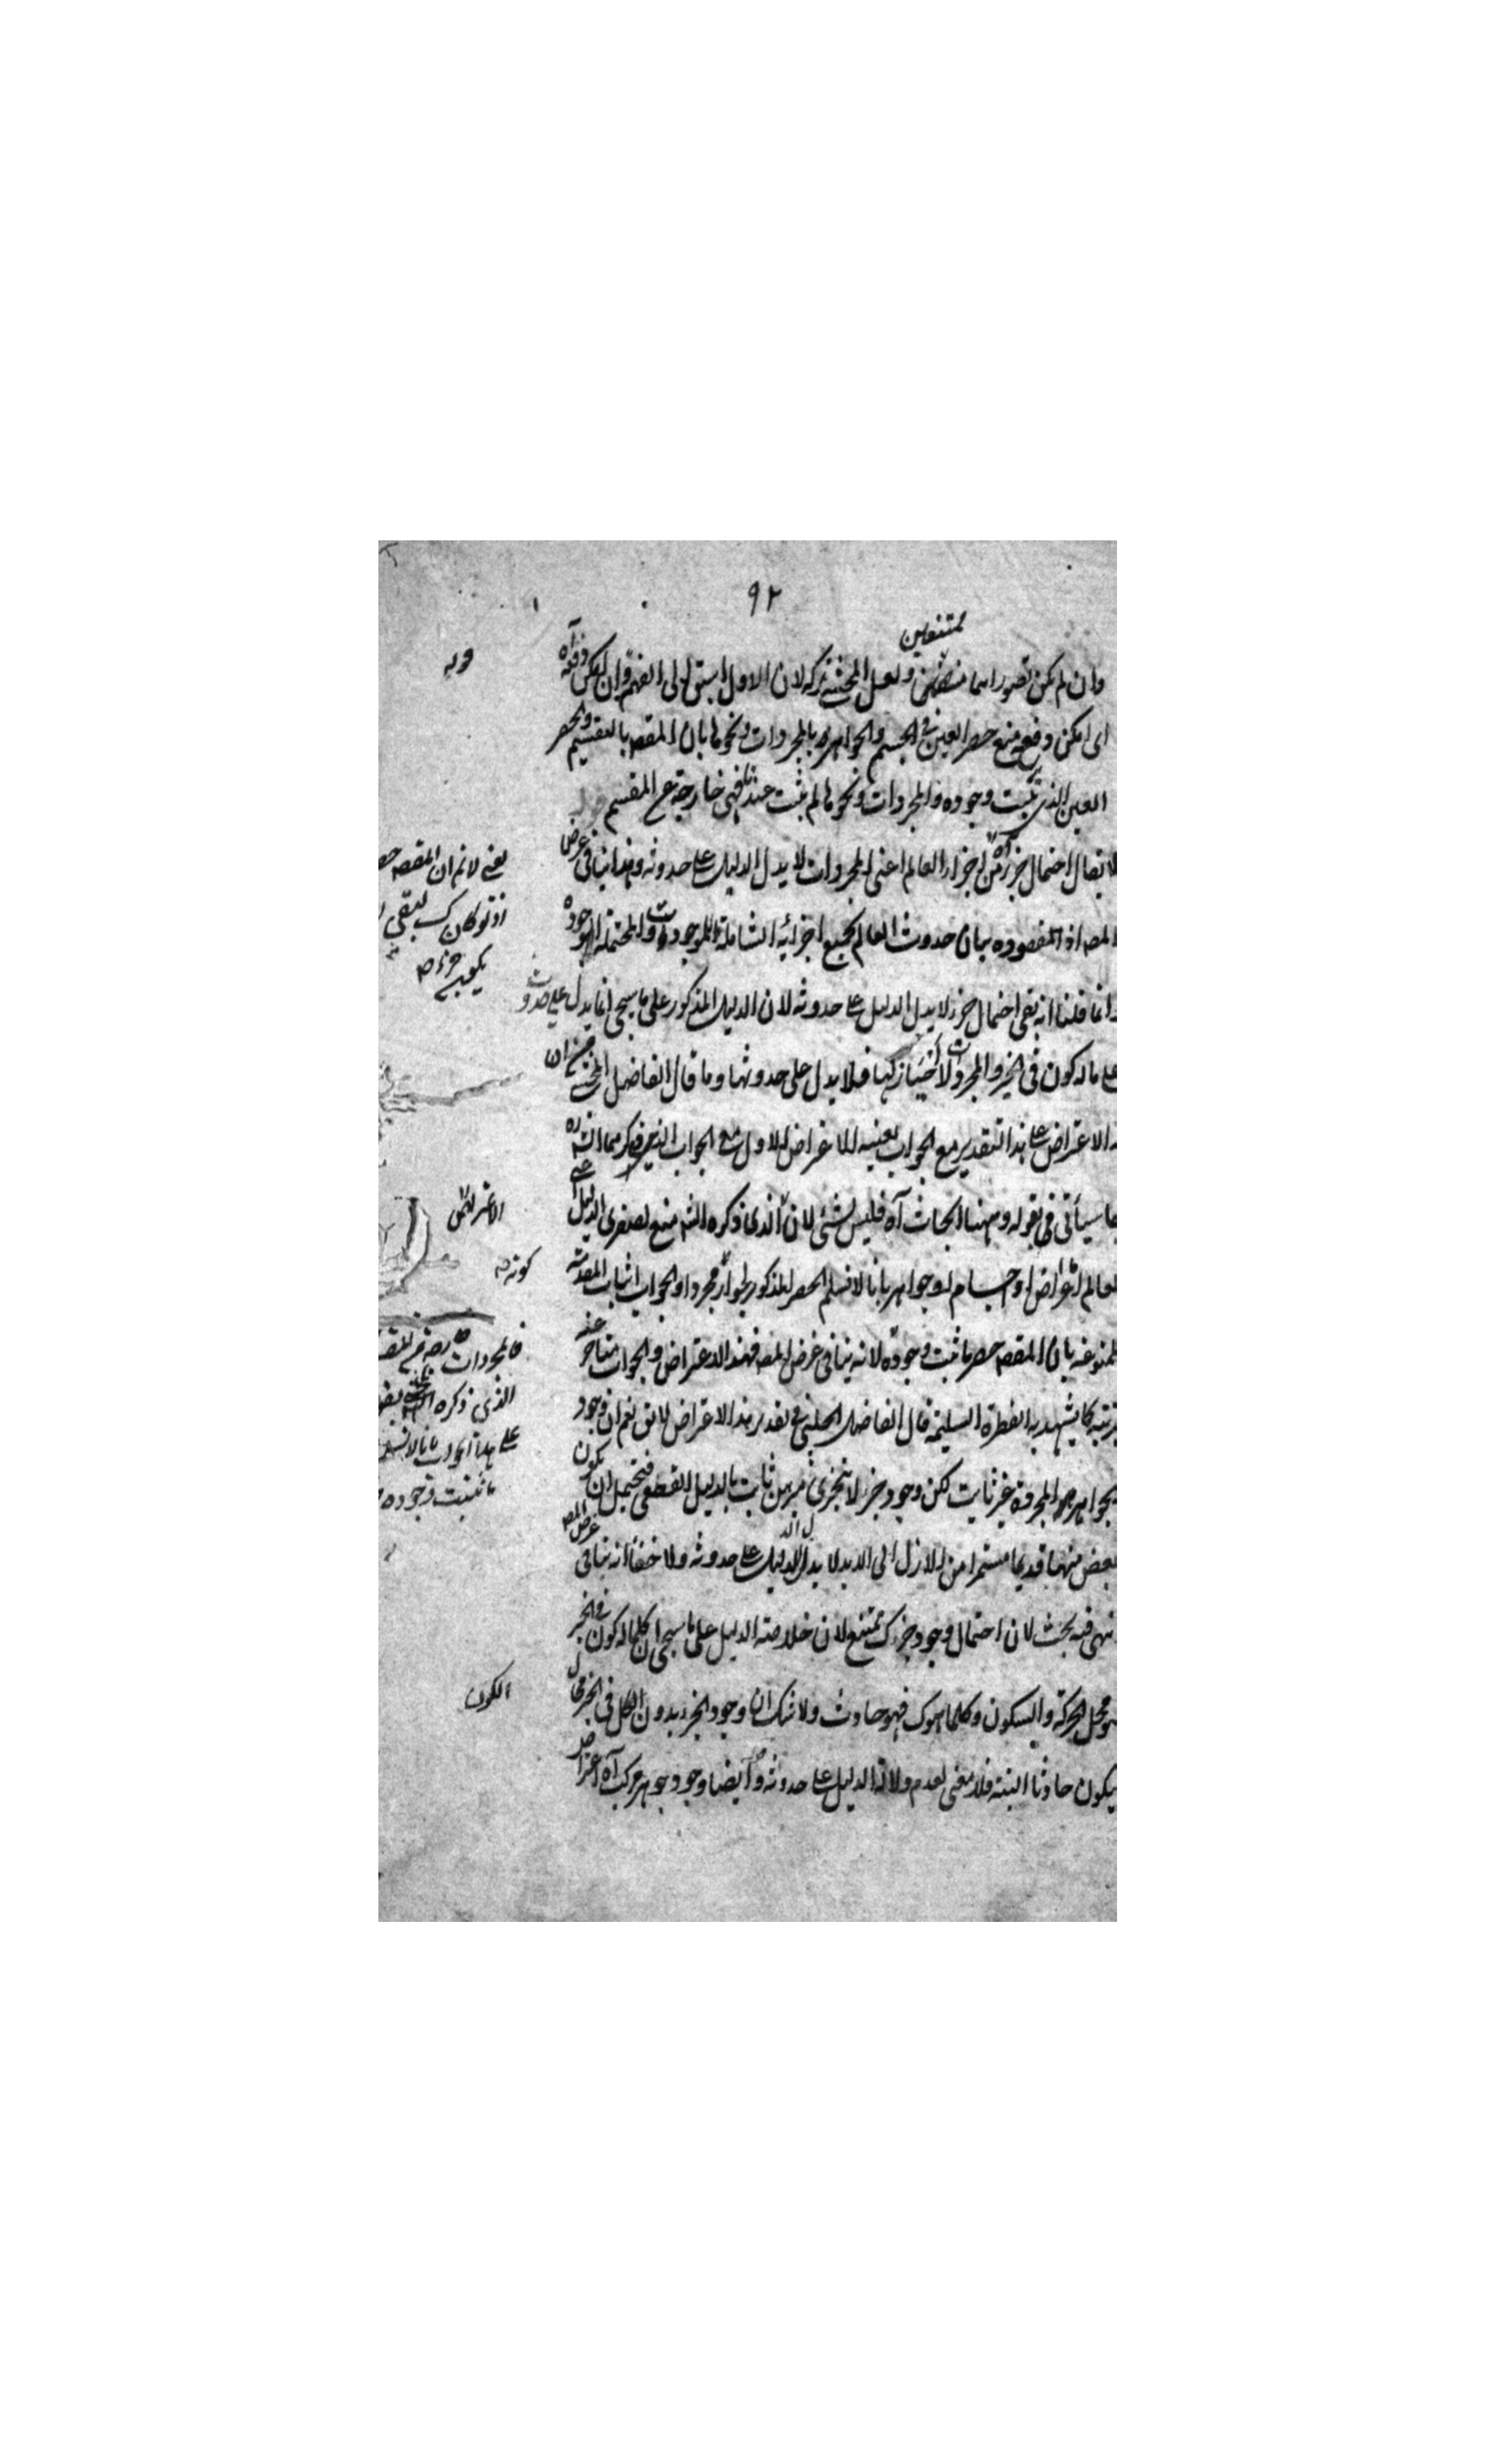 ٩٢
ممتنعين
وان لم يكن تصوراهما ولعل المحشى تركه لان الاول اسبق الى الفهم قوله وان امكن دفعه آه
اى امكن دفع منع حصر العين فى الجسم والجواهر بالمجردات ونحوها بان المقصه بالتقسيم حصر
العين الذى ثبت وجوده والمجردات ونحوها لم يثبت عندنا فهى خارجة عن المقسم
لا يقال احتمال جزء من اجزاء العالم اعنى المجردات لا يدل الدليل على حدوثه وهذا ينافى غرض
المصه اذ المقصوده بيان حدوث العالم بجميع اجزائه الشاملة للموجودات والمحتملة الوجود
وانما قلنا انه بقى احتمال جزء لا يدل الدليل على حدوثه لان الدليل المذكور على ما سيجئ انما يدل على حدوث
ما له كون فى الحيز والمجردات لا حيز لها فلا يدل على حدوثها وما قال الفاضل المحشى من ان
الاعتراض على هذا التقدير مع الجواب بعينه الاعتراض الاول مع الجواب الذين ذكرهما الشه
سيأتى فى قوله وههنا ابحاث آه فليس بشئ لان الذى ذكره الشه منع لصغرى الدليل
اعراض واجسام وجواهر بانا لا نسلم الحصر المذكور لجواز مجرد والجواب اثبات المقدمة
الممنوعة بان المقصه حصر ما ثبت وجوده لانه ينافى غرض المصه فهذا الاعتراض والجواب متأخر عنه
كما يشهد به الفطرة السليمة قال الفاضل الچلبى فى تقدير هذا الاعتراض لا يق نعم ان وجود
الجواهر المجردة غير ثابت لكن وجود جزء لا يتجزى مبرهن ثابت بالدليل القطعى فيحتمل ان يكون
بعض منها قديما مستمرا من الازل الى الابد لا يدل الدليل على حدوثه ولا خفأ انه ينافى غرض المصه
انتهى فيه بحث لان احتمال وجود جزء ك ممتنع لان خلاصة الدليل على ما سيجئ ان كلما له كون فى الحيز
هو محل الحركة والسكون وكلما هو ك فهو حادث ولا شك ان وجود الجزء بدون الكون فى الحيز محال
يكون حادثا البتة فلا معنى لعدم دلالة الدليل على حدوثه وايضا وجود جوهر مركب آه اعتراض
قوله
يعنى لا نم ان المقصه
اذ لو كان ك لبقى
الكون
فالمجردات خارجة عن
الذى ذكره
على هذا الجواب بانا لا نسلم
ما ثبت وجوده